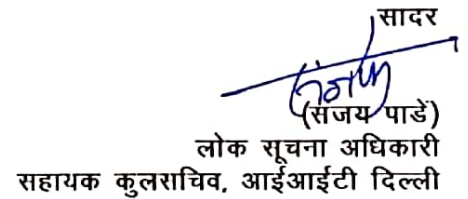 सादर
(संजय पाडें)
लोक सूचना अधिकारी
सहायक कुलसचिव, आईआईटी दिल्ली